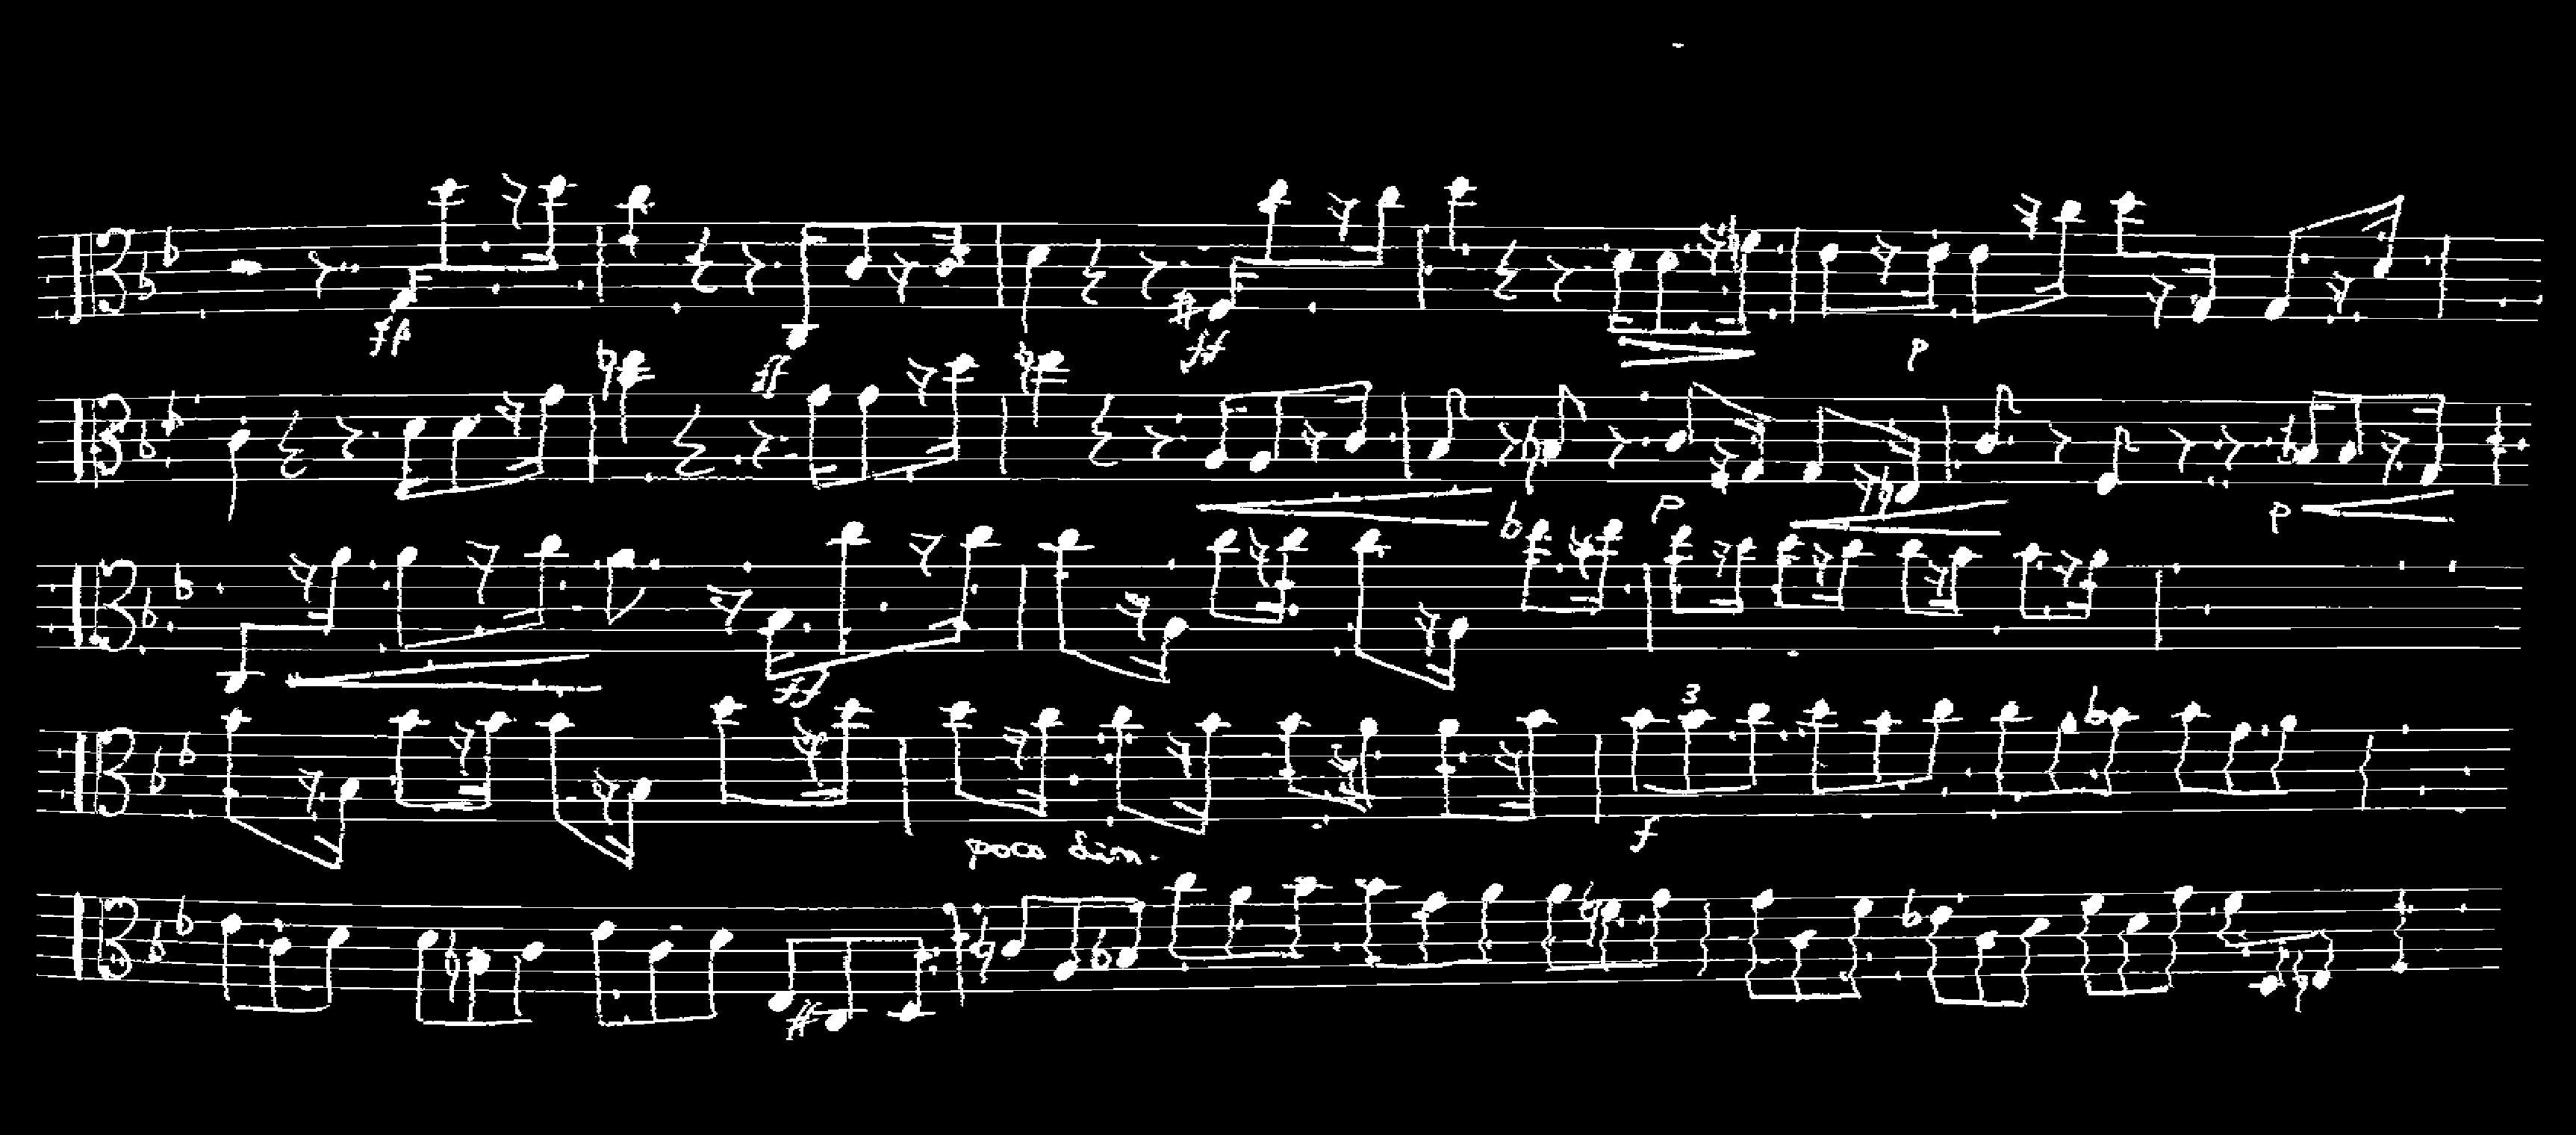 fp ff ff p
p p
ff
3
poco dim. f